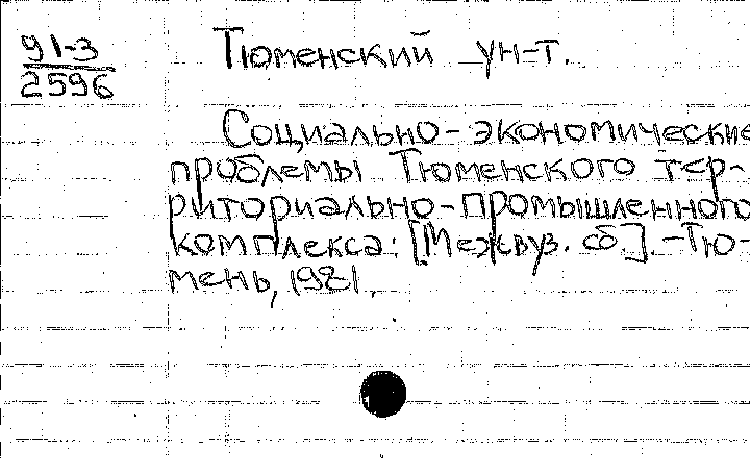 91-3
2596
Тюменский ун-т.
Социально-экономические
проблемы Тюменского тер-
риториально-промышленного
комплекса: [Межвуз. сб]. -Тю-
мень, 1981.